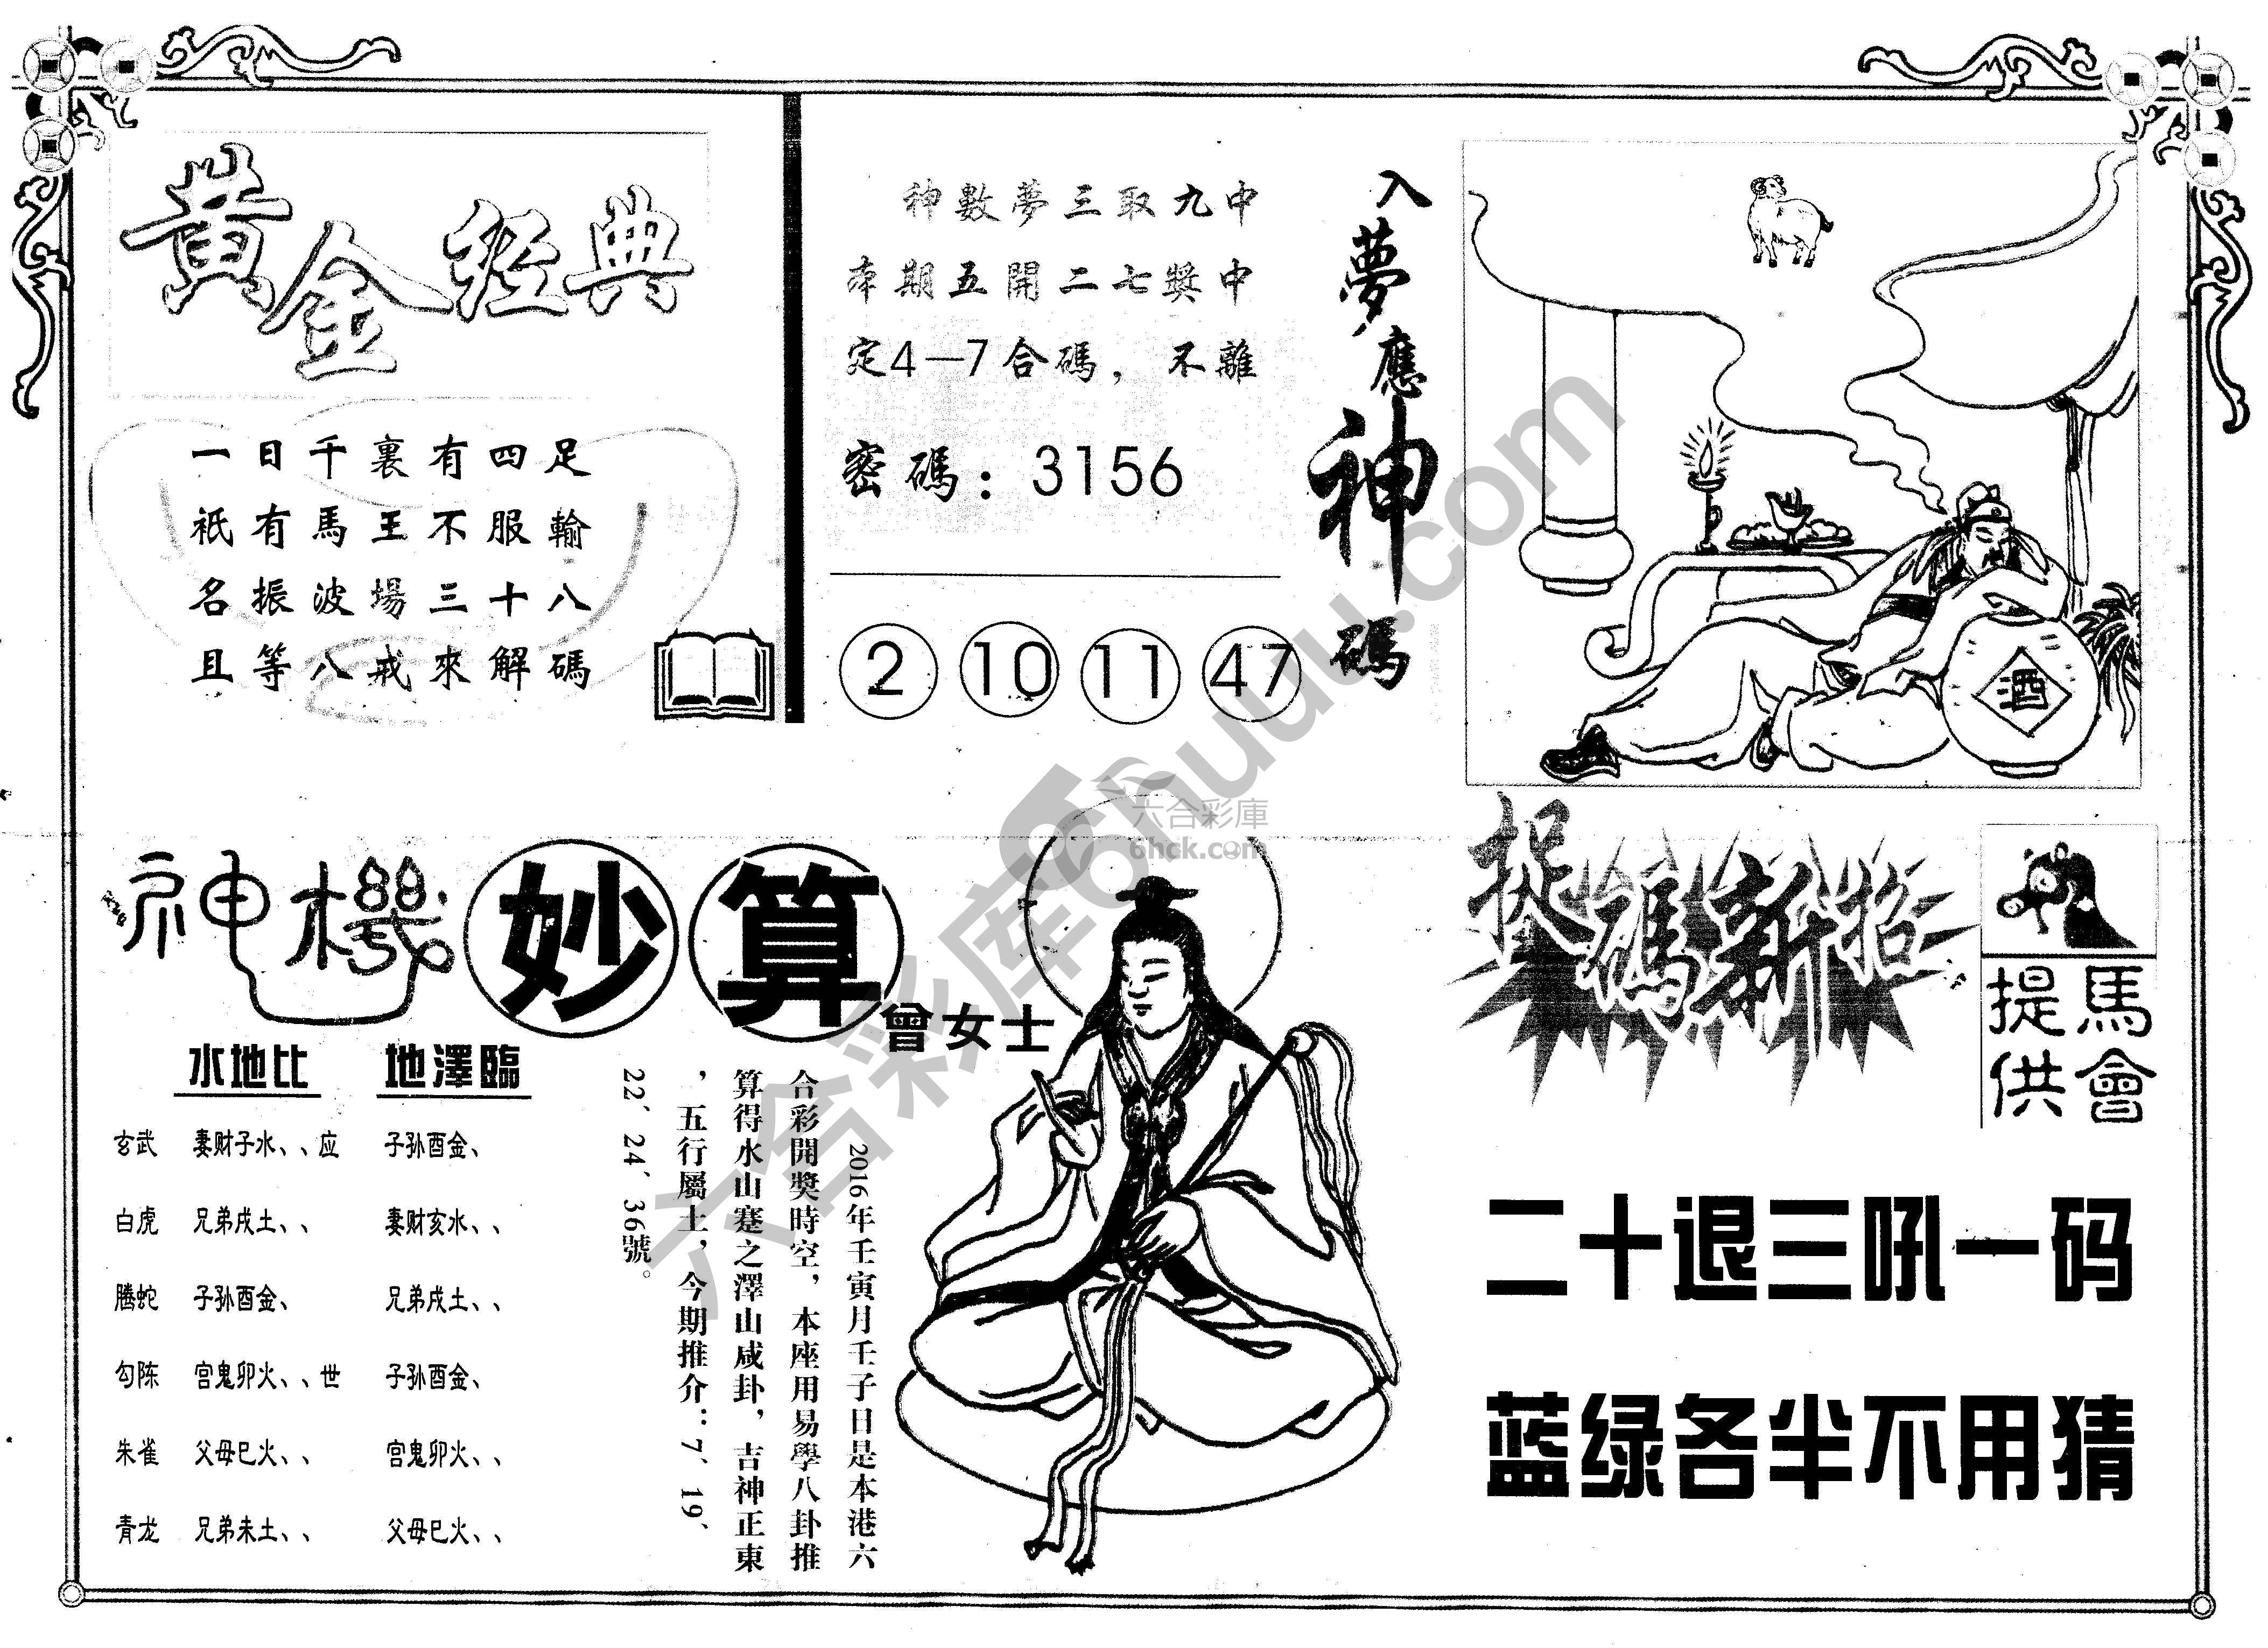 黄金经典
一日千裏有四足
衹有馬王不服輸
名振波場三十八
且等八戒來解碼
神數夢三取九中
本期五開二七獎中
定4—7合碼，不離
密碼：3156
2 10 11 47
入夢應神碼
酒
神機妙算
曾女士
水地比 地澤臨
玄武 妻财子水、、应 子孙酉金、
白虎 兄弟戌土、、 妻财亥水、、
腾蛇 子孙酉金、 兄弟戌土、、
勾陈 宫鬼卯火、、世 子孙酉金、
朱雀 父母巳火、、 宫鬼卯火、、
青龙 兄弟未土、、 父母巳火、、
2016年壬寅月壬子日是本港六
合彩開獎時空，本座用易學八卦推
算得水山蹇之澤山咸卦，吉神正東
，五行屬土，今期推介：7、19、
22、24、36號。
捉碼新招
馬會
提供
二十退三吼一码
蓝绿各半不用猜
六合彩庫
6hck.com
六合彩库6huuu.com